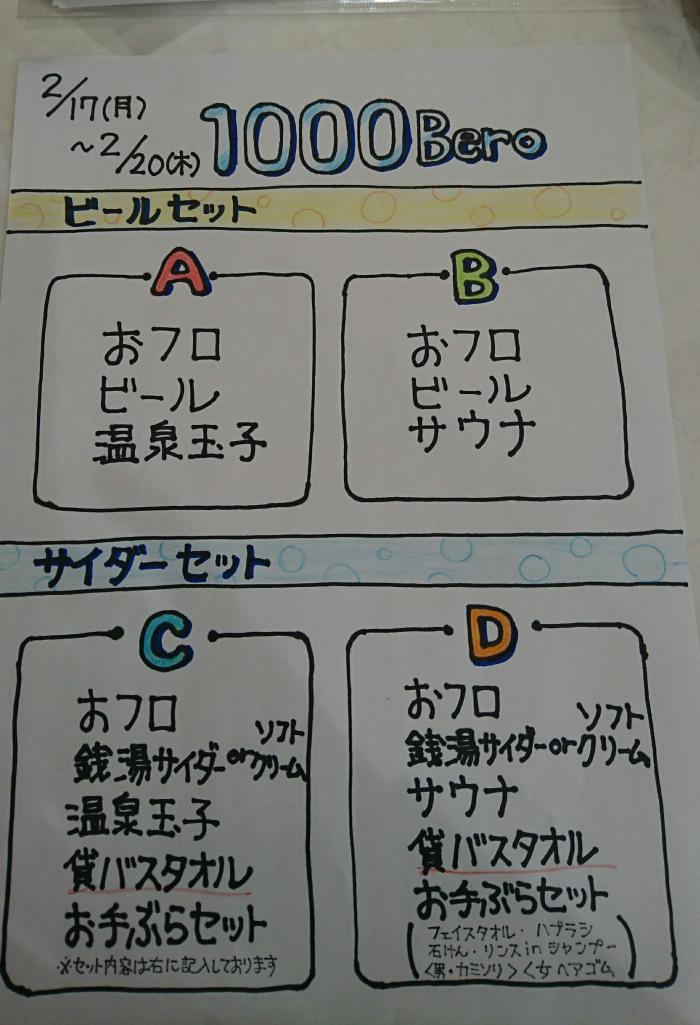 2/17(月)
~2/20(木)
1000Bero
ビールセット
A
おフロ
ビール
温泉玉子
B
おフロ
ビール
サウナ
サイダーセット
C
おフロ
銭湯サイダーorソフトクリーム
温泉玉子
貸バスタオル
お手ぶらセット
※セット内容は右に記入しております
D
おフロ
銭湯サイダーorソフトクリーム
サウナ
貸バスタオル
お手ぶらセット
(フェイスタオル・ハブラシ
石けん・リンスinシャンプー
<男・カミソリ><女ヘアゴム)